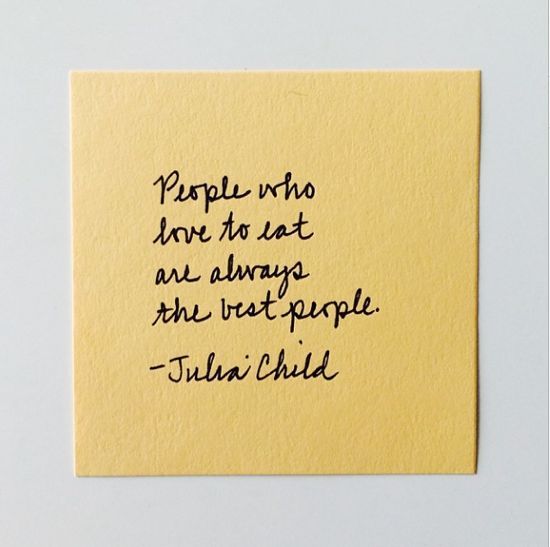 People who
love to eat
are always
the best people.
-Julia Child